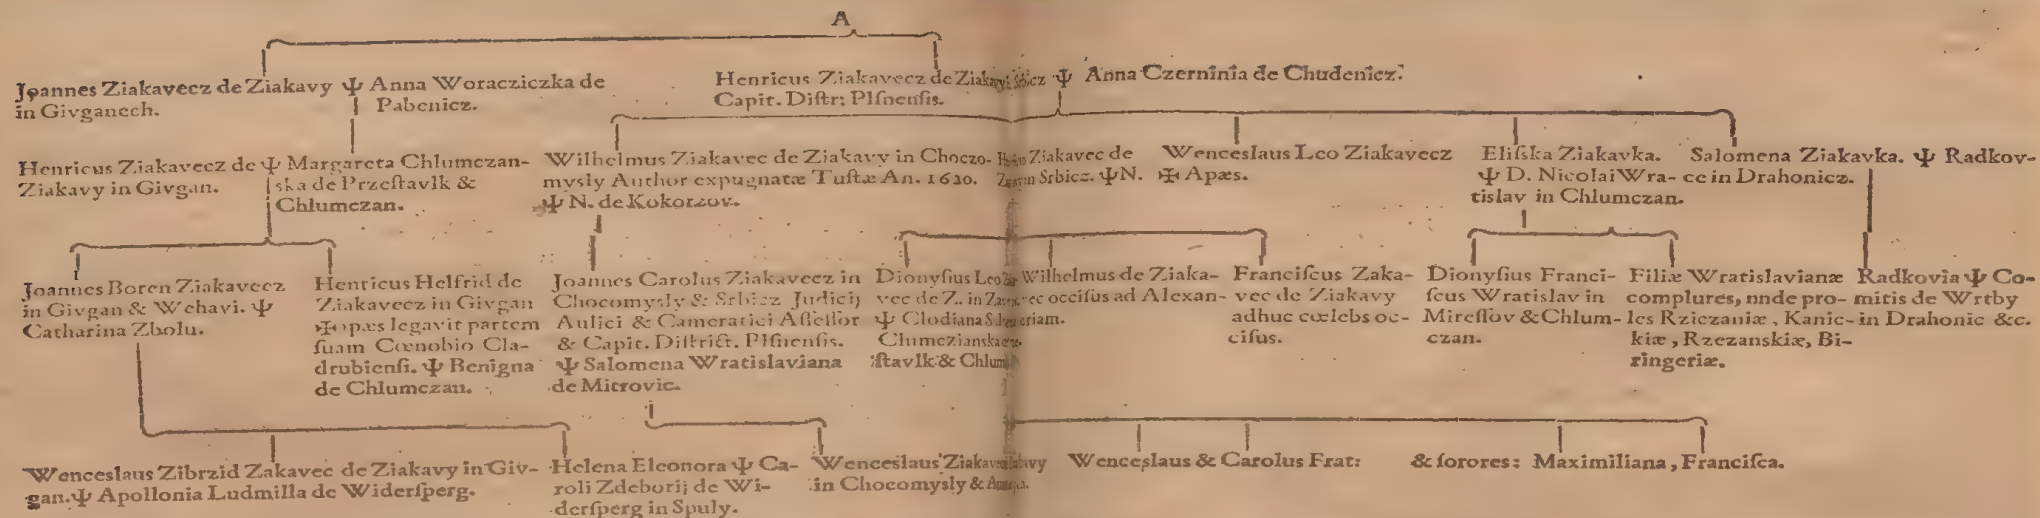 A
Joannes Ziakavecz de Ziakavy Ψ Anna Woracziczka de
in Givganech. Pabenicz.
Henricus Ziakavecz de Ziakavy Srbicz Ψ Anna Czerninia de Chudenicz.
Capit. Diſtr: Plſnenſis.
Henricus Ziakavecz de Ψ Margareta Chlumczan-
Ziakavy in Givgan. ska de Przeſtavlk &
Chlumczan.
Wilhelmus Ziakavec de Ziakavy in Choczo-
mysly Author expugnatæ Tuſtæ An. 1620.
Ψ N. de Kokorzov.
Ziakavec de
Srbicz. Ψ N.
Wenceslaus Leo Ziakavecz
✠ Apæs.
Eliſska Ziakavka.
Ψ D. Nicolai Wra-
tislav in Chlumczan.
Salomena Ziakavka. Ψ Radkov-
ce in Drahonicz.
Joannes Boren Ziakavecz
in Givgan & Wchavi. Ψ
Catharina Zbolu.
Henricus Helfrid de
Ziakavecz in Givgan
✠ opæs legavit partem
ſuam Cœnobio Cla-
drubienſi. Ψ Benigna
de Chlumczan.
Joannes Carolus Ziakavecz in
Chocomysly & Srbicz Judicij
Aulici & Cameratici Aſſeſſor
& Capit. Diſtrict. Plſnenſis.
Ψ Salomena Wratislaviana
de Mitrovic.
Dionyſius Leo
vec de Z. in
Ψ Clodiana
Clumczianska
ſtavlk & Chlum
Wilhelmus de Ziaka-
vec occiſus ad Alexan-
driam.
Franciſcus Zaka-
vec de Ziakavy
adhuc cœlebs oc-
ciſus.
Dionyſius Franci-
ſcus Wratislav in
Mireſſov & Chlum-
czan.
Filiæ Wratislavianæ
complures, nnde pro-
les Rziczaniæ, Kanic-
kiæ, Rzezanskiæ, Bi-
ringeriæ.
Radkovia Ψ Co-
mitis de Wrtby
in Drahonic &c.
Wenceslaus Zibrzid Zakavec de Ziakavy in Giv-
gan. Ψ Apollonia Ludmilla de Widerſperg.
Helena Eleonora Ψ Ca-
roli Zdeborij de Wi-
derſperg in Spuly.
Wenceslaus Ziakavec
in Chocomysly &
Wenceslaus & Carolus Frat:
& ſorores: Maximiliana, Franciſca.